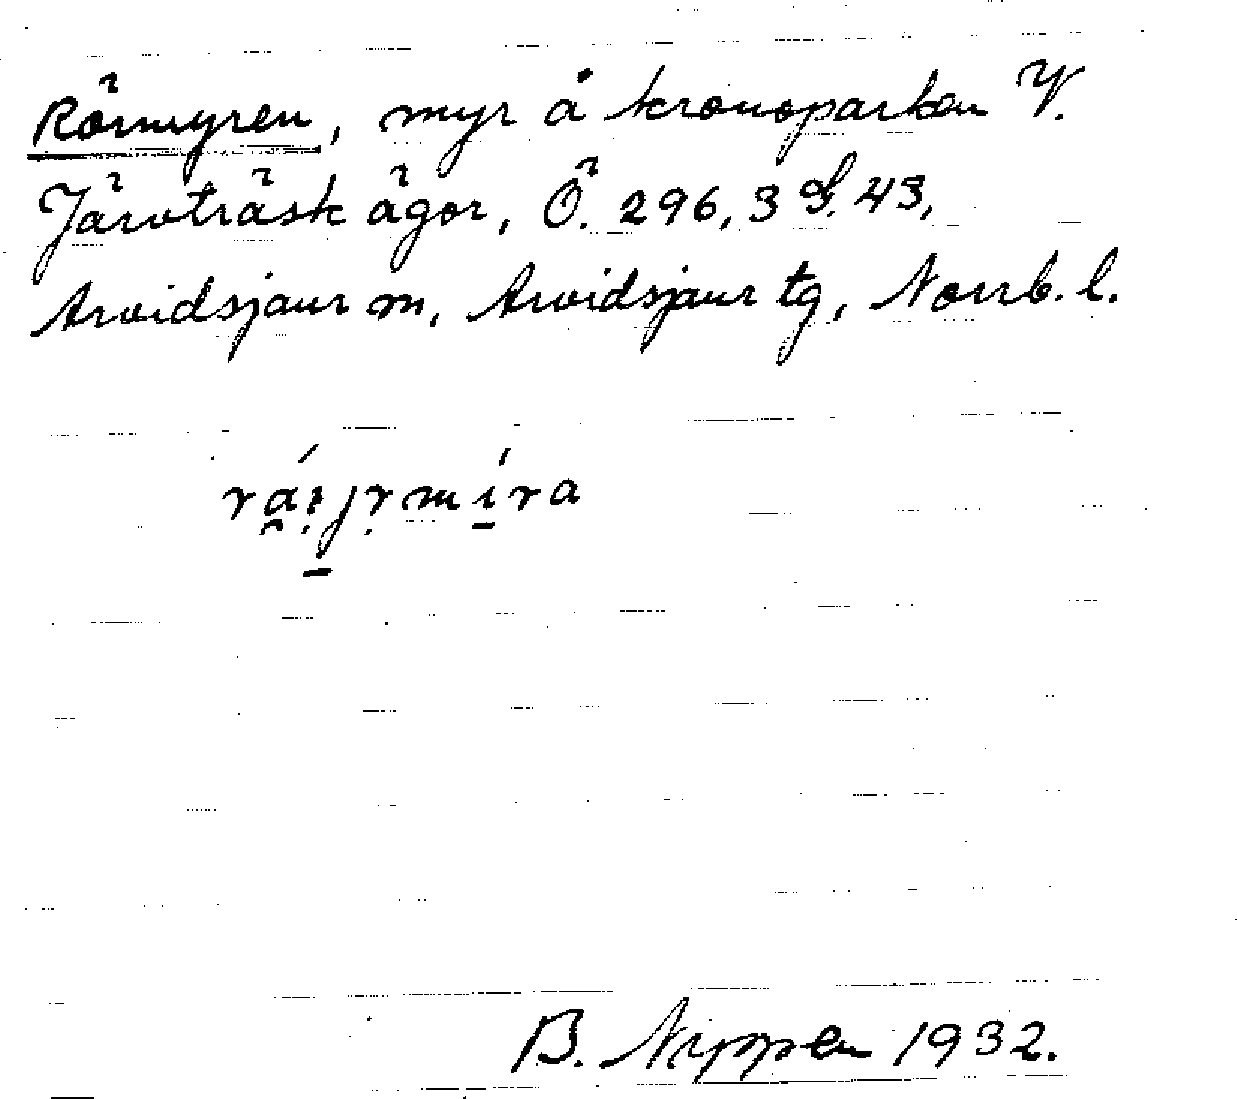 Rörmyren, myr å kronoparken V.
Järvträsk ägor, Ö. 296, 3 S. 43,
Arvidsjaur m, Arvidsjaur tg, Norrb. l.
B. Nyppen 1932.